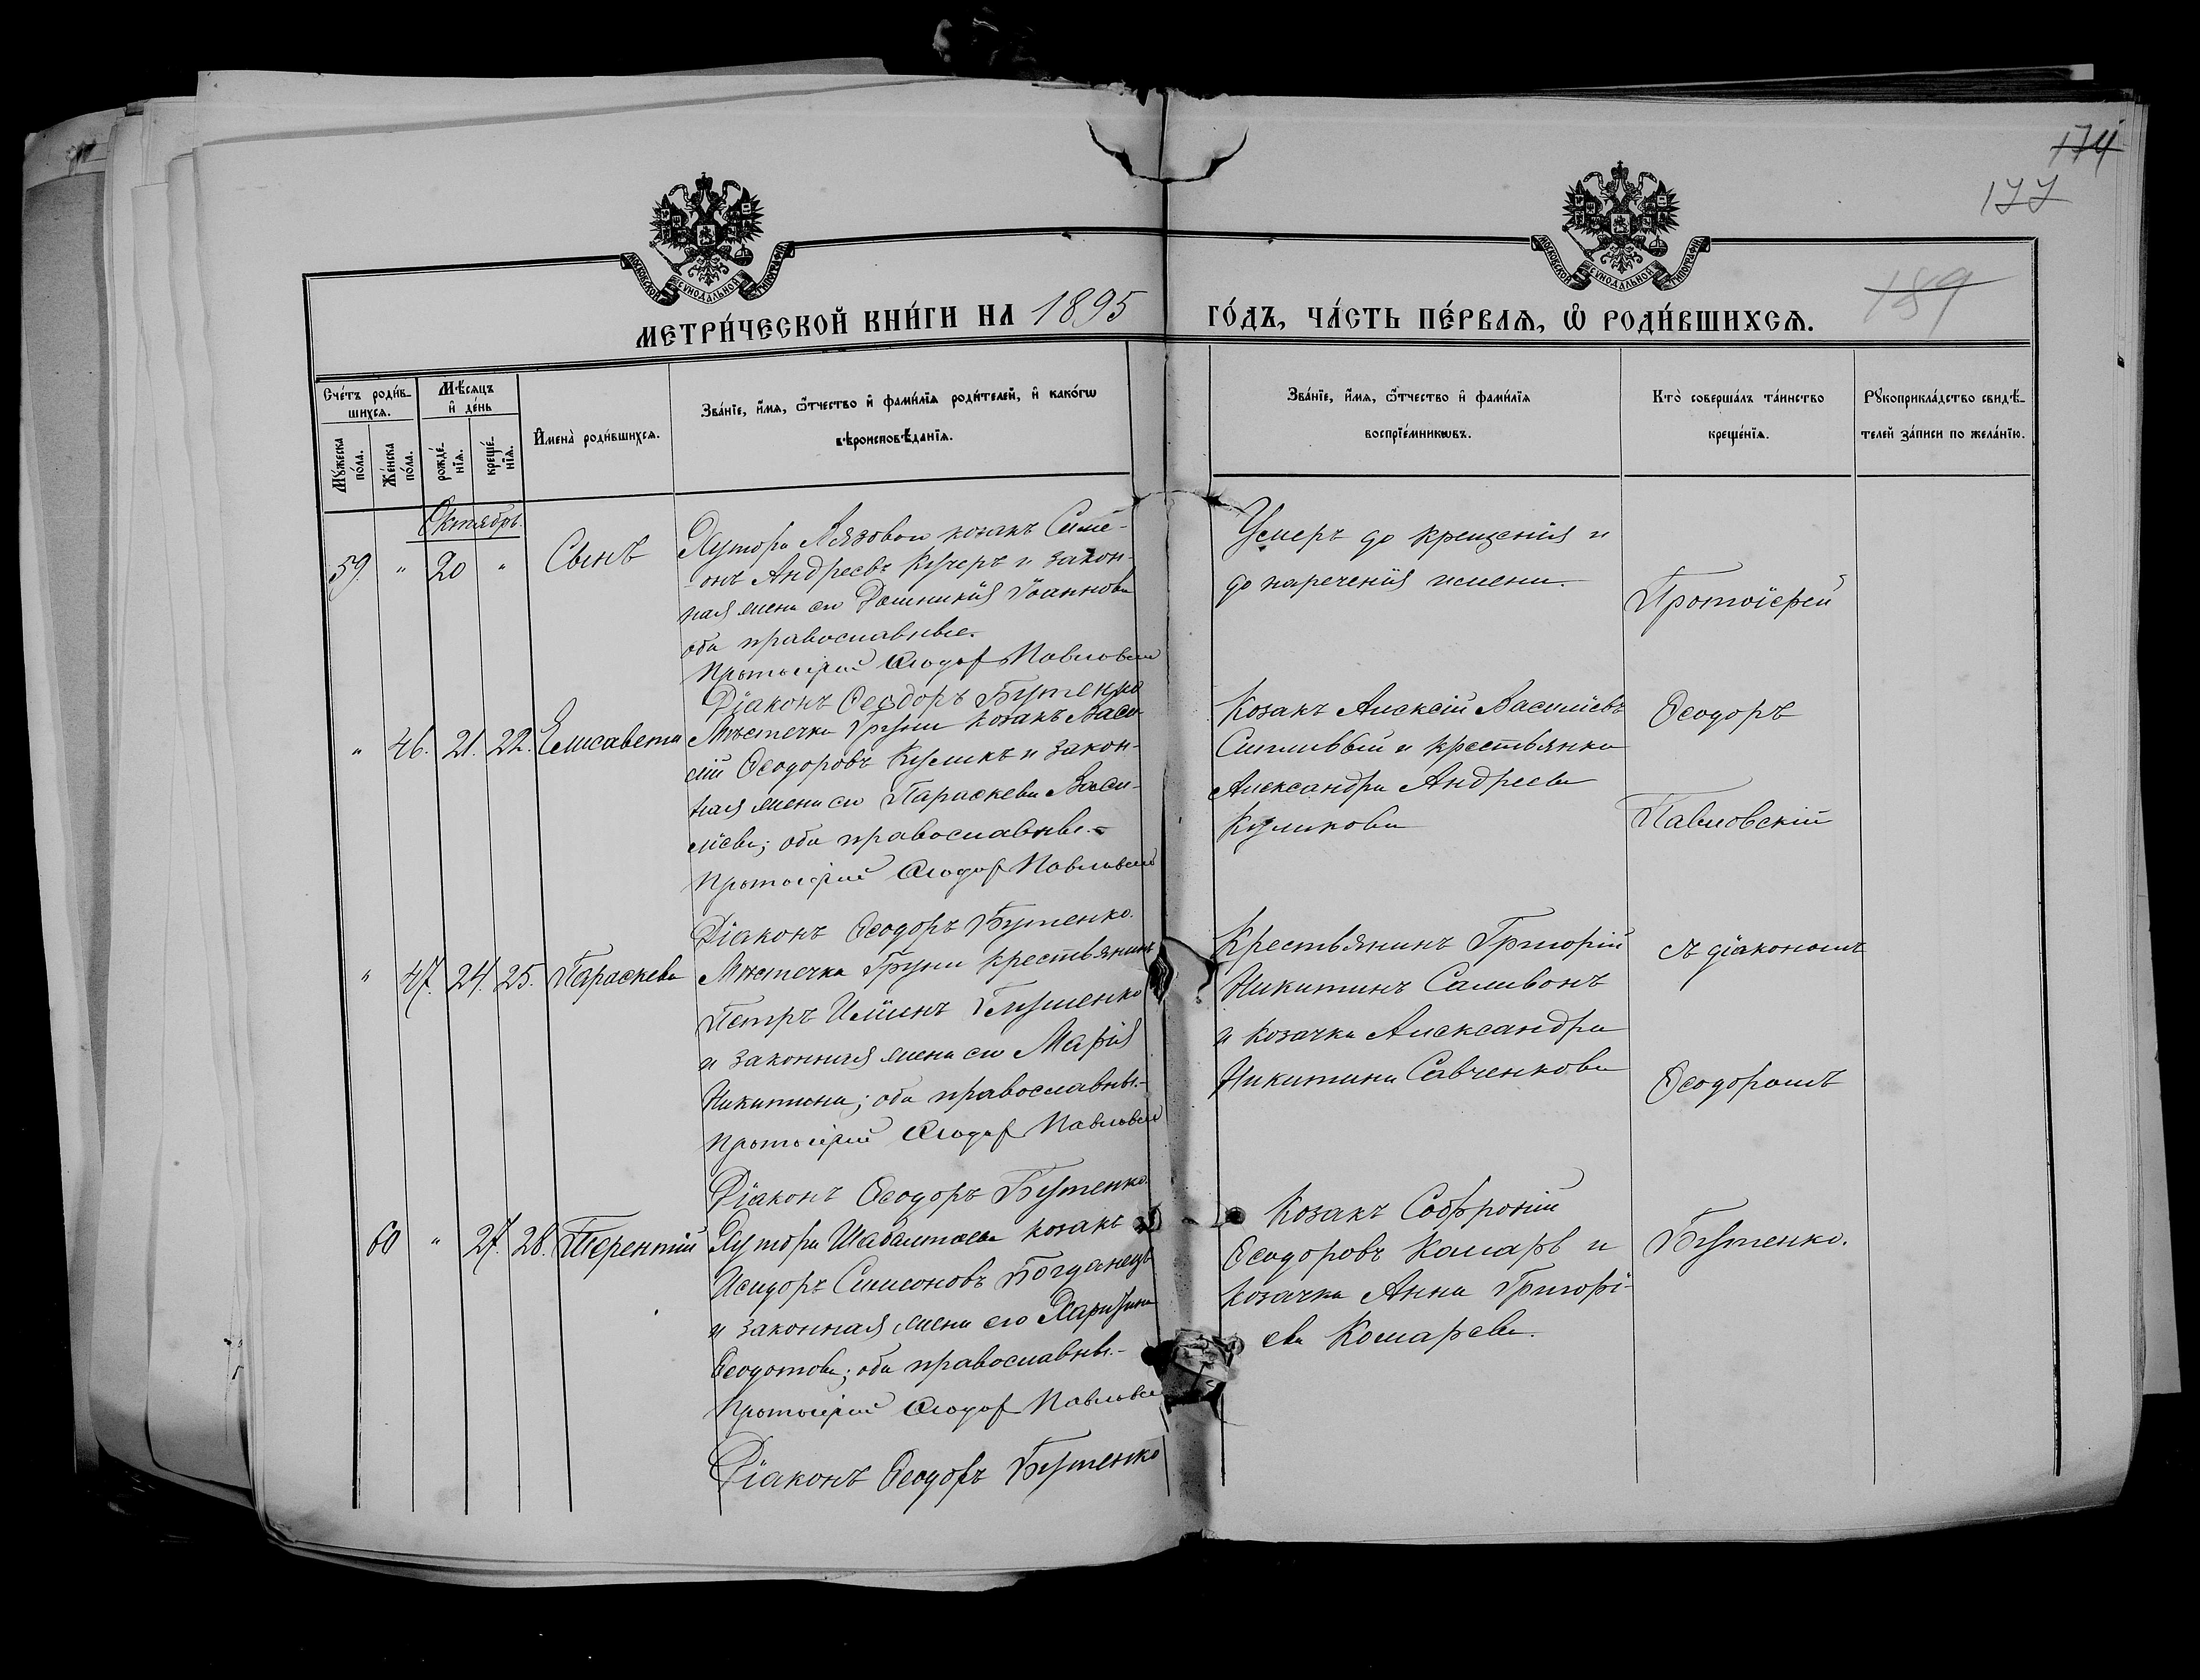 174
177
189
МОСКОВСКОЙ СѴНОДАЛЬНОЙ ТИПОГРАФІИ
МОСКОВСКОЙ СѴНОДАЛЬНОЙ ТИПОГРАФІИ
МЕТРИ́ЧЕСКОЙ КНИ́ГИ НА 1895 ГО́ДЪ, ЧА́СТЬ ПЕ́РВАѦ, Ѡ҆ РОДИ́ВШИХСѦ.
Сче́тъ роди́в-
шихсѧ.
Мꙋ́жеска по́ла.
Же́нска по́ла.
Мѣ́сѧцъ и҆ де́нь
рожде́-нїѧ.
креще́-нїѧ.
И҆мена̀ роди́вшихсѧ.
Зва́нїе, и҆́мѧ, ѻ҆́тчество и҆ фами́лїѧ роди́телей, и҆ како́гѡ
вѣроисповѣ́данїѧ.
Зва́нїе, и҆́мѧ, ѻ҆́тчество и҆ фами́лїѧ
воспрїе́мникѡвъ.
Кто̀ соверша́лъ та́инство
креще́нїѧ.
Рꙋкоприкла́дство свидѣ́-
телей за́писи по жела́нїю.
Октябрь.
59. " 20 " Сынъ
Хутора Лязовои козакъ Симе-
онъ Андреевъ Кучеръ и закон-
ная жена его Домникія Іоаннова
оба православные.
Протоіерей Ѳеодоръ Павловскій
Діаконъ Ѳеодоръ Бутенко
Умеръ до крещенія и
до нареченія имени.
Протоіерей
" 46. 21. 22. Елисавета
Мѣстечка Груни козакъ Васи-
лій Ѳеодоровъ Куликъ и закон-
ная жена его Параскева Васи-
ліева; оба православные.-
Протоіерей Ѳеодоръ Павловскій
Діаконъ Ѳеодоръ Бутенко.
Козакъ Алексій Василіевъ
Сипливый и крестьянка
Александра Андреева
Куликова
Ѳеодоръ
Павловскій
" 47. 24. 25. Параскева
Мѣстечка Груни крестьянинъ
Петръ Иліинъ
и законная жена его Марія
Никитина; оба православные.-
Протоіерей Ѳеодоръ Павловскій
Діаконъ Ѳеодоръ Бутенко.
Крестьянинъ Григорій
Никитинъ Саливонъ
и козачка Александра
Никитина Савченкова
съ діакономъ
Ѳеодоромъ
60 " 27. 28. Терентій
Хутора козакъ
Исидоръ Симеоновъ Богданецъ
и законная жена его Харитина
Ѳеодотова; оба православные.-
Протоіерей Ѳеодоръ Павловскій
Діаконъ Ѳеодоръ Бутенко
Козакъ Софроній
Ѳеодоровъ Комаръ и
козачка Анна Григорі-
ева Комарева.
Бутенко.